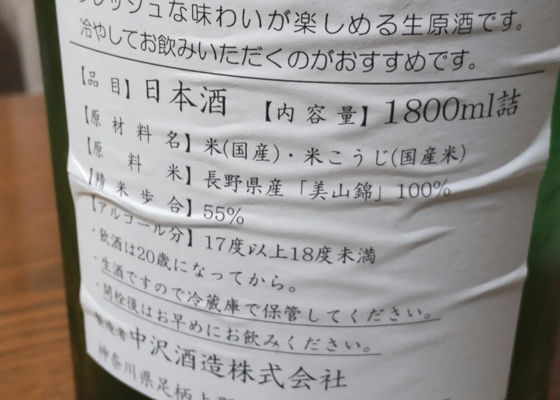 レッシュな味わいが楽しめる生原酒です。
冷やしてお飲みいただくのがおすすめです。
【品目】日本酒 【内容量】1800ml詰
【原材料名】米(国産)・米こうじ(国産米)
【原料米】長野県産「美山錦」100%
【精米歩合】55%
【アルコール分】17度以上18度未満
・飲酒は20歳になってから。
・生酒ですので冷蔵庫で保管してください。
・開栓後はお早めにお飲みください。
製造者 中沢酒造株式会社
神奈川県足柄上郡